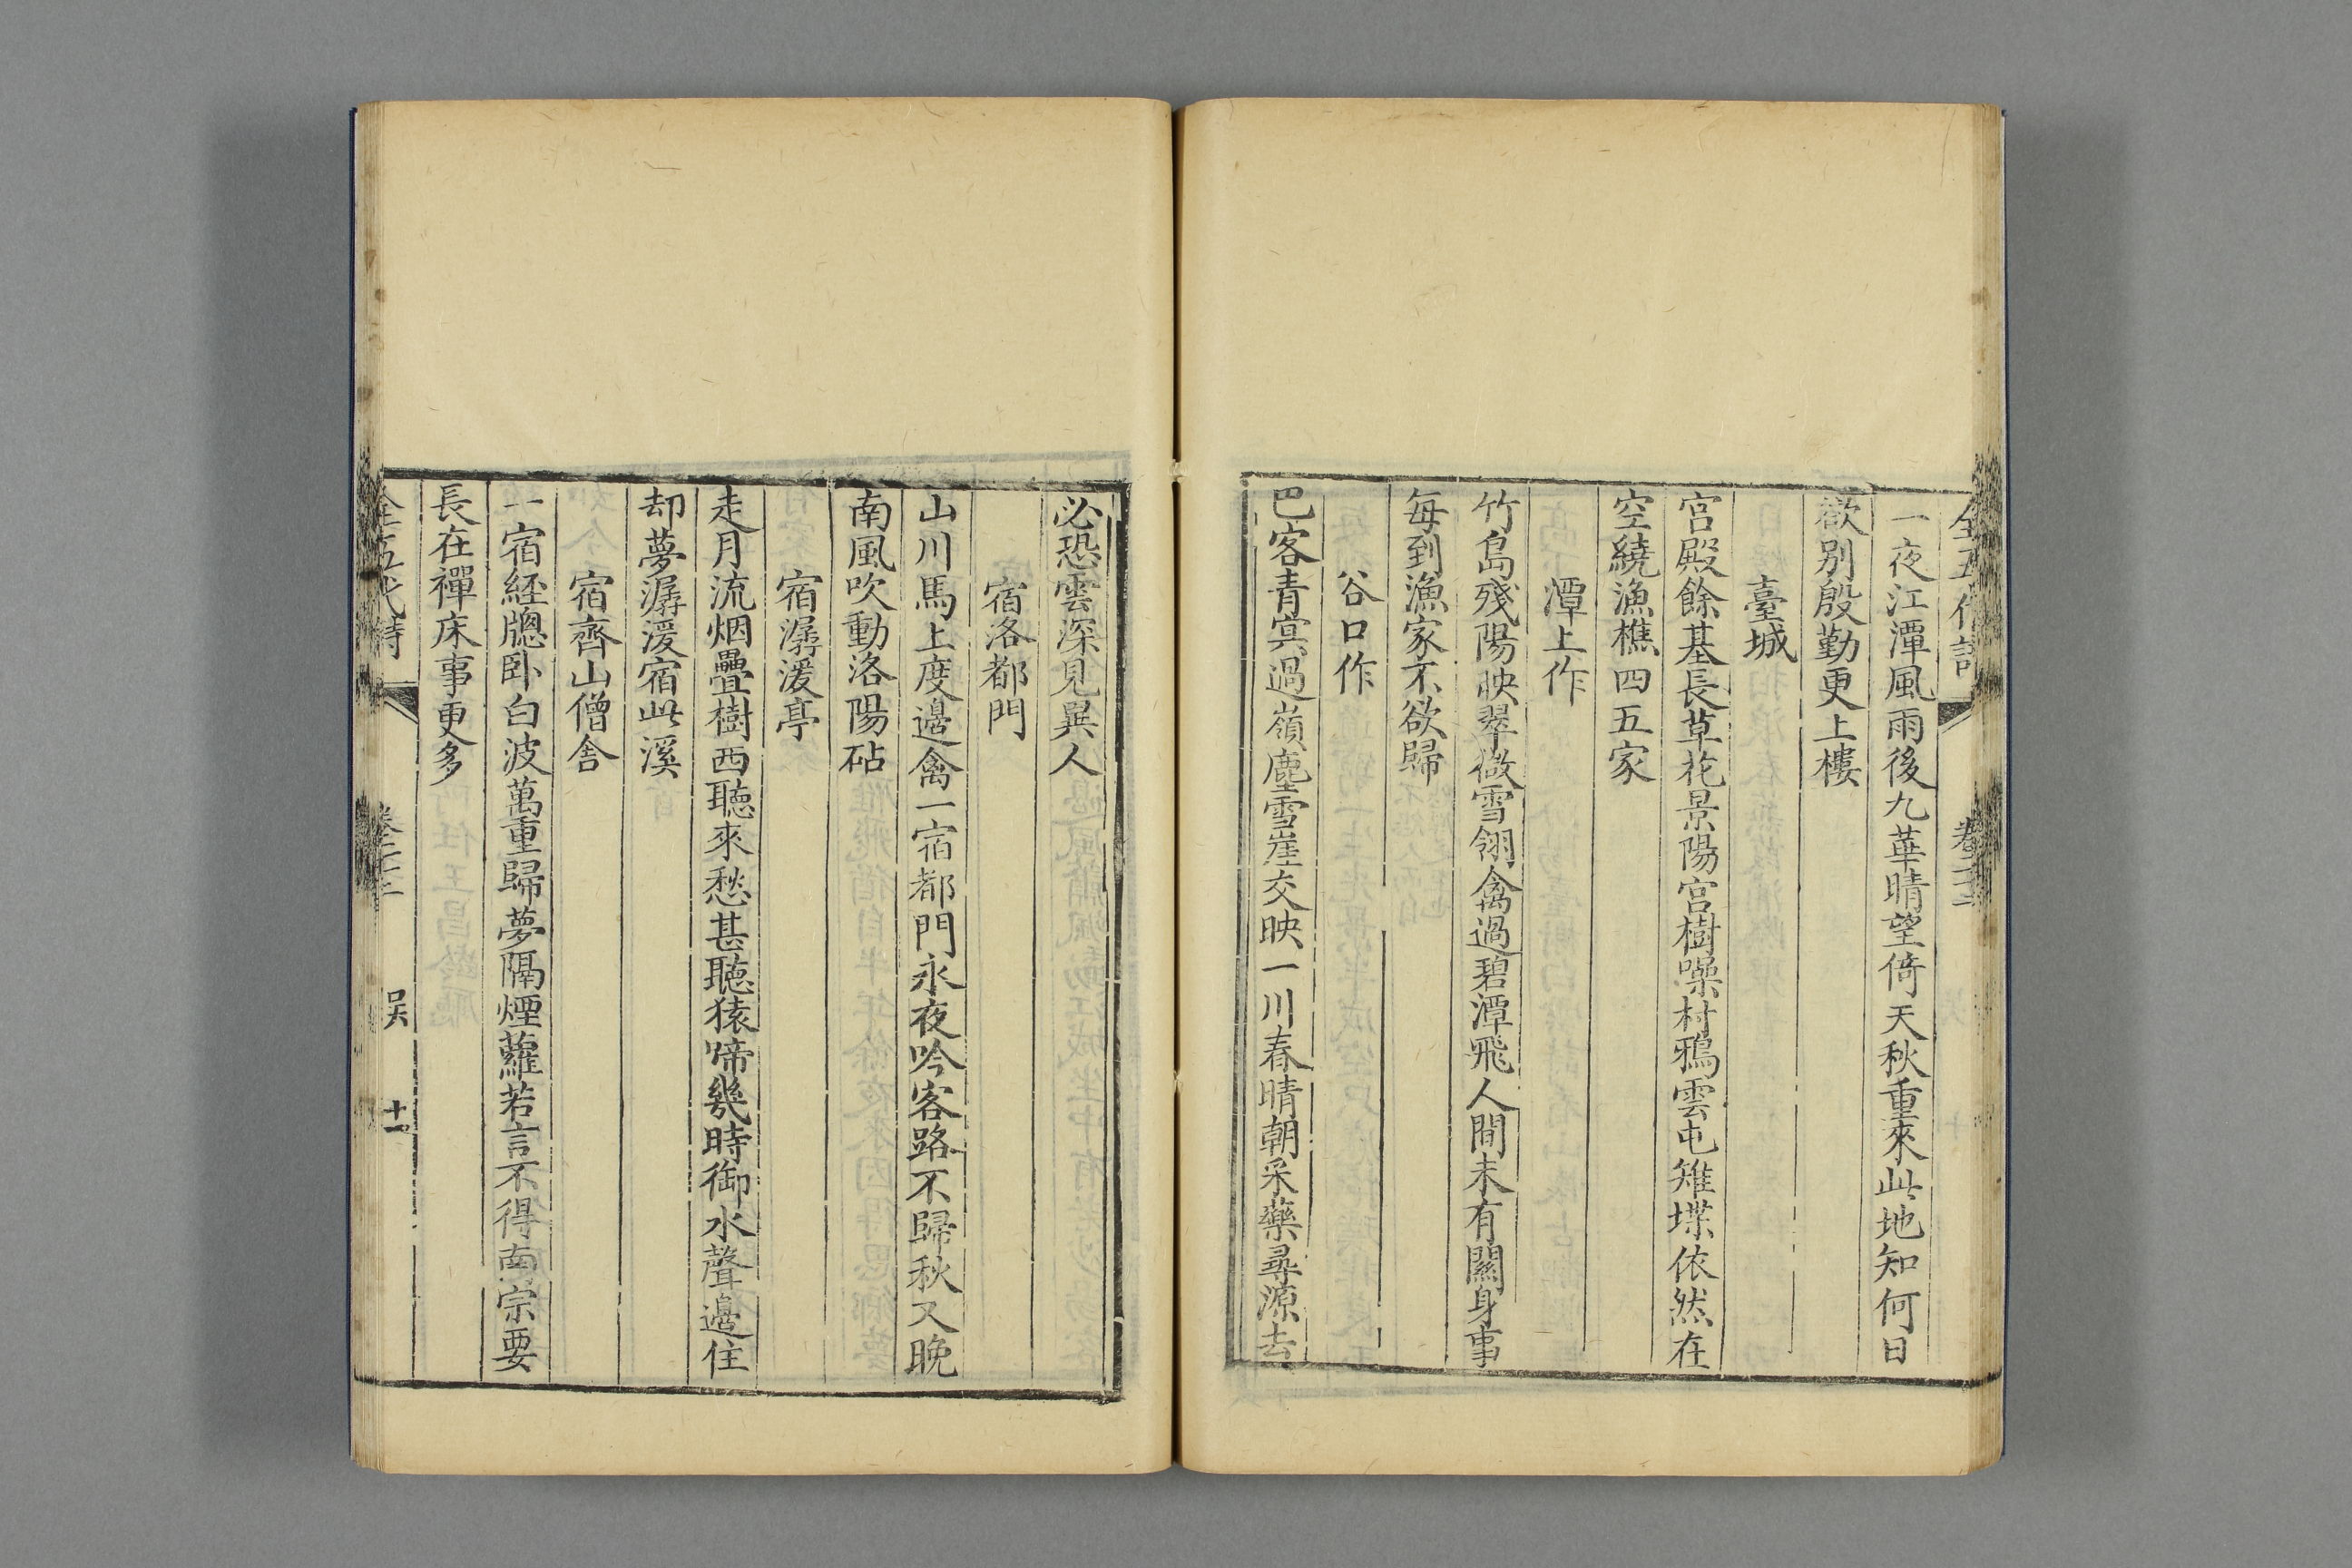 全五代詩 卷二十二
一夜江潭風雨後九華晴望倚天秋重來此地知何日
欲别殷勤更上樓
臺城
宫殿餘基長草花景陽宫樹噪村鴉雲屯雉堞依然在
空繞漁樵四五家
潭上作
竹島殘陽映翠微雪翎禽過碧潭飛人間未有關身事
每到漁家不欲歸
谷口作
巴客青冥過嶺塵雪崖交映一川春晴朝采藥尋源去
必恐雲深見異人
宿洛都門
山川馬上度邊禽一宿都門永夜吟客路不歸秋又晚
南風吹動洛陽砧
宿潺湲亭
走月流烟疊樹西聽來愁甚聽猿啼幾時御水聲邊住
却夢潺湲宿此溪
宿齊山僧舎
一宿經牕卧白波萬重歸夢隔煙蘿若言不得南宗要
長在禪床事更多
全五代詩 卷二十二 吳 十一